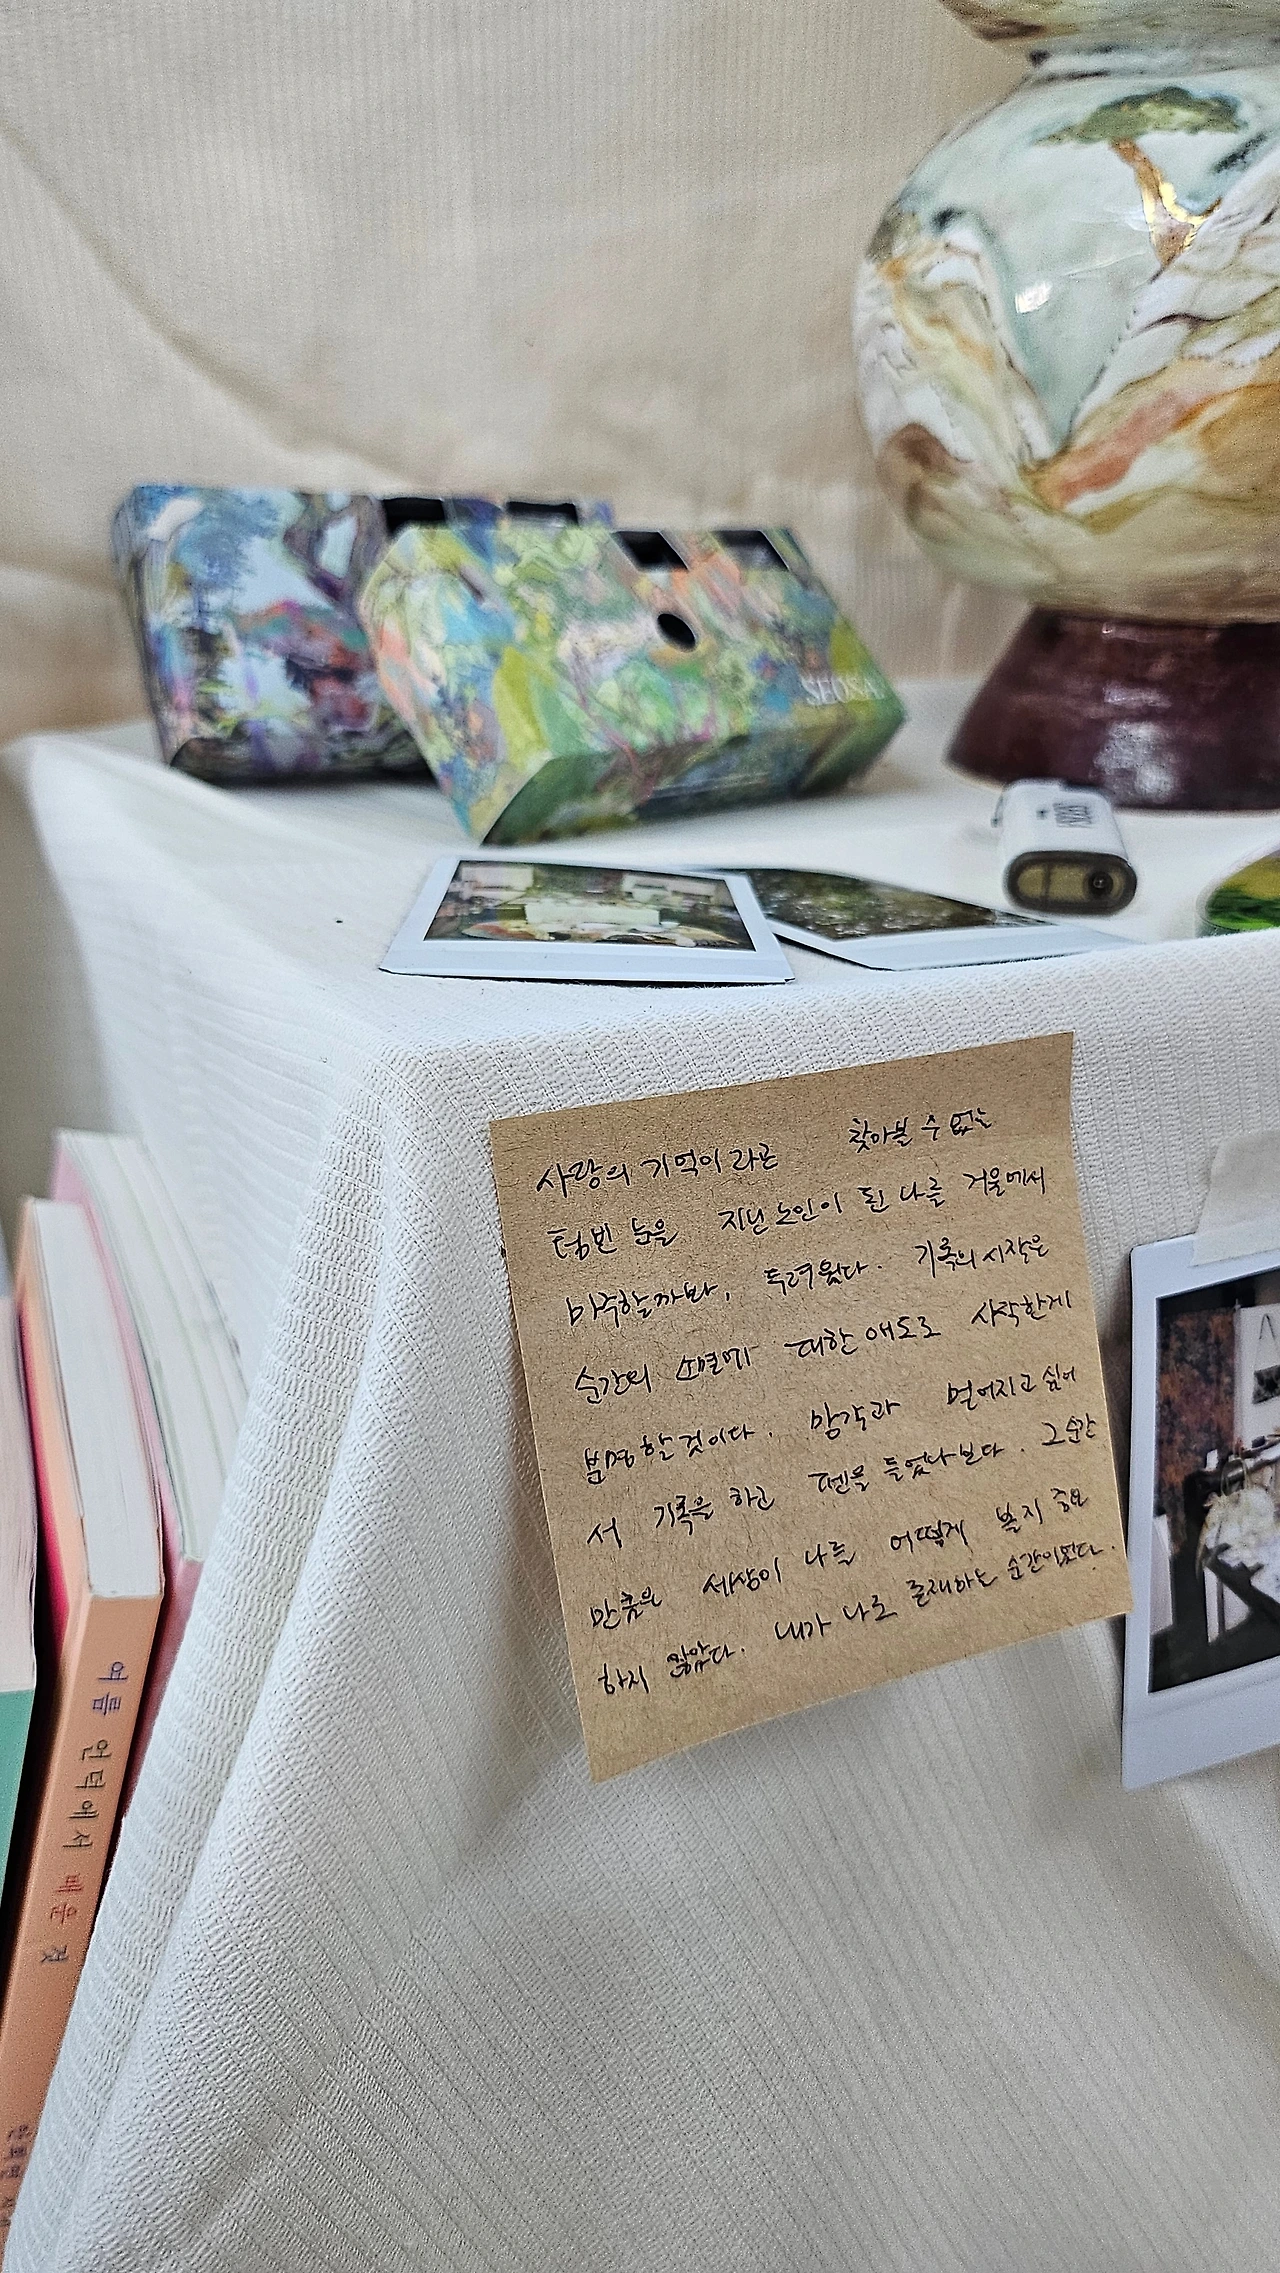 SEOSA
사랑의 기억이라곤 찾아볼 수 없는
텅빈 눈을 지닌 노인이 된 나를 거울에서
마주할까봐, 두려웠다. 기록의 시작은
순간의 소멸에 대한 애도로 시작한게
분명할 것이다. 망각과 멀어지고 싶어
서 기록을 하고 펜을 들었나보다. 그 순간
만큼은 세상이 나를 어떻게 볼지 중요
하지 않았다. 내가 나로 존재하는 순간이었다.
여름 언덕에서 배운 것